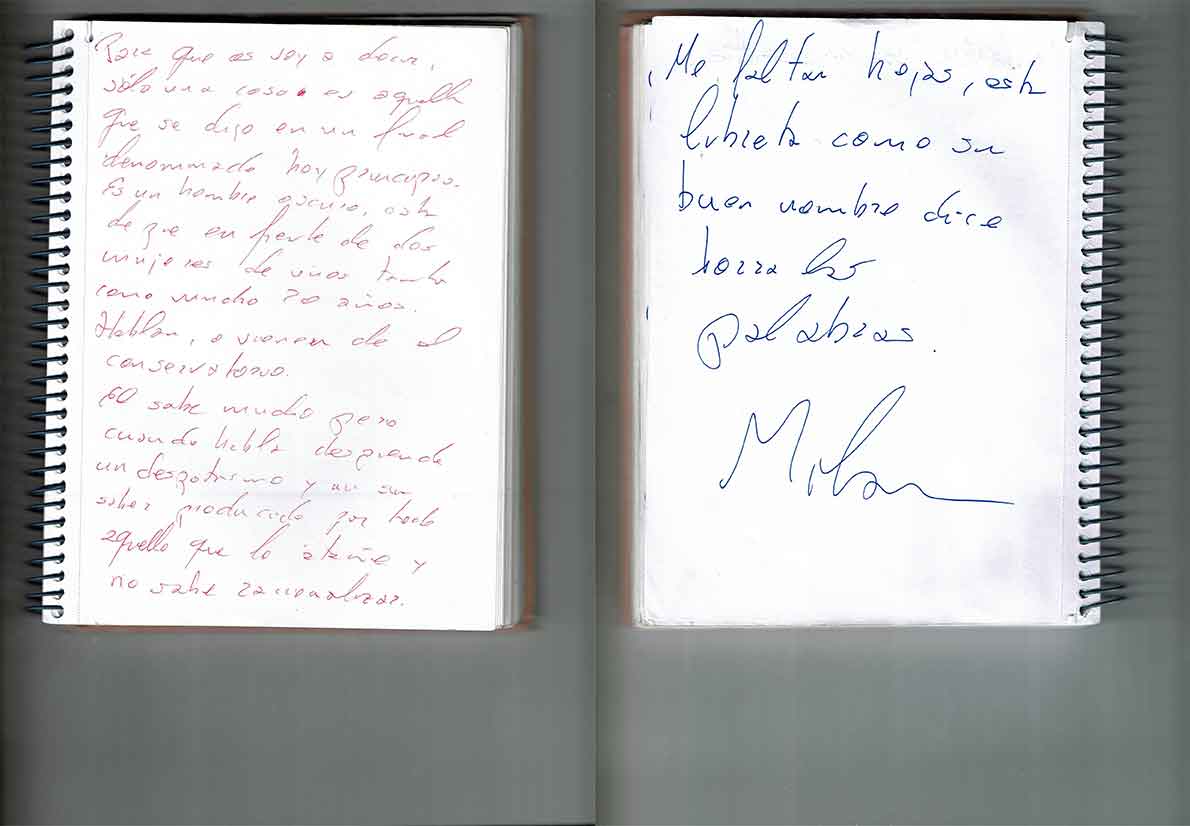 Para que os voy a decir,
sólo una cosa es aquella
que se dijo en un final
denominado hoy principio.
Es un hombre oscuro, está
de pie en frente de dos
mujeres de unos
como mucho 70 años.
Hablan, o vienen de el
conservatorio.
Él sabe mucho pero
cuando habla desprende
un despotismo y un
saber producido por todo
aquello que lo atañe y
no sabe racionalizar.
Me faltan hojas, esta
libreta como su
buen nombre dice
borra las
palabras.